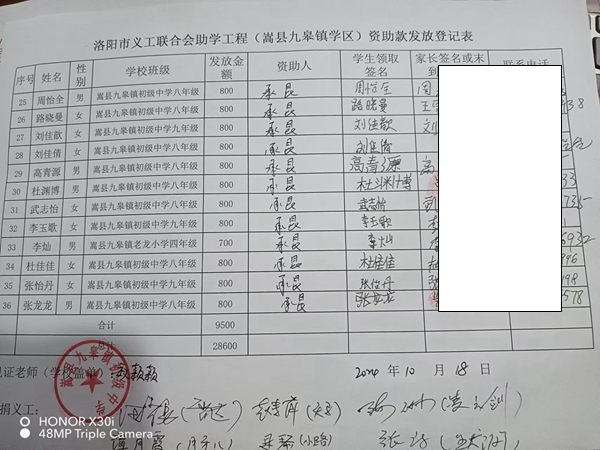 洛阳市义工联合会助学工程（嵩县九皋镇学区）资助款发放登记表
序号 姓名 性别 学校班级 发放金额 资助人 学生领取签名 家长签名或未到 联系电话
25 周怡全 男 嵩县九皋镇初级中学八年级 800 承昆 周怡全
26 路晓曼 女 嵩县九皋镇初级中学八年级 800 承昆 路晓曼
27 刘佳歆 女 嵩县九皋镇初级中学九年级 800 承昆 刘佳歆
28 刘佳倩 女 嵩县九皋镇初级中学八年级 800 承昆 刘佳倩
29 高青源 男 嵩县九皋镇初级中学八年级 800 承昆 高青源
30 杜渊博 男 嵩县九皋镇初级中学八年级 800 承昆 杜渊博
31 武志怡 女 嵩县九皋镇初级中学八年级 800 承昆 武志怡
32 李玉歌 女 嵩县九皋镇初级中学九年级 800 承昆 李玉歌
33 李灿 男 嵩县九皋镇老龙小学四年级 700 承昆 李灿
34 杜佳佳 女 嵩县九皋镇初级中学八年级 800 承昆 杜佳佳
35 张怡丹 女 嵩县九皋镇初级中学九年级 800 承昆 张怡丹
36 张龙龙 男 嵩县九皋镇初级中学八年级 800 承昆 张龙龙
合计 9500
总计 28600
见证老师（学校盖章）： 2024 年 10 月 18 日
捐义工：
HONOR X30i
48MP Triple Camera